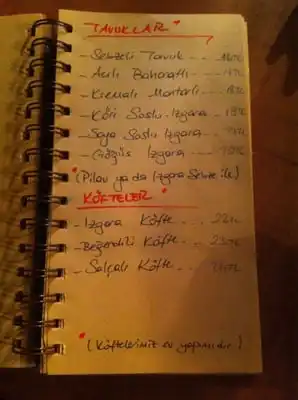 TAVUKLAR *
- Sebzeli Tavuk
- Acılı Baharatlı
- Kremalı Mantarlı
- Köri Soslu Izgara
- Soya Soslu Izgara
- Göğüs Izgara
*(Pilav ya da Izgara Sebze ile)
KÖFTELER *
- Izgara Köfte
- Beğendili Köfte
- Salçalı Köfte
*
(Köftelerimiz ev yapımıdır.)